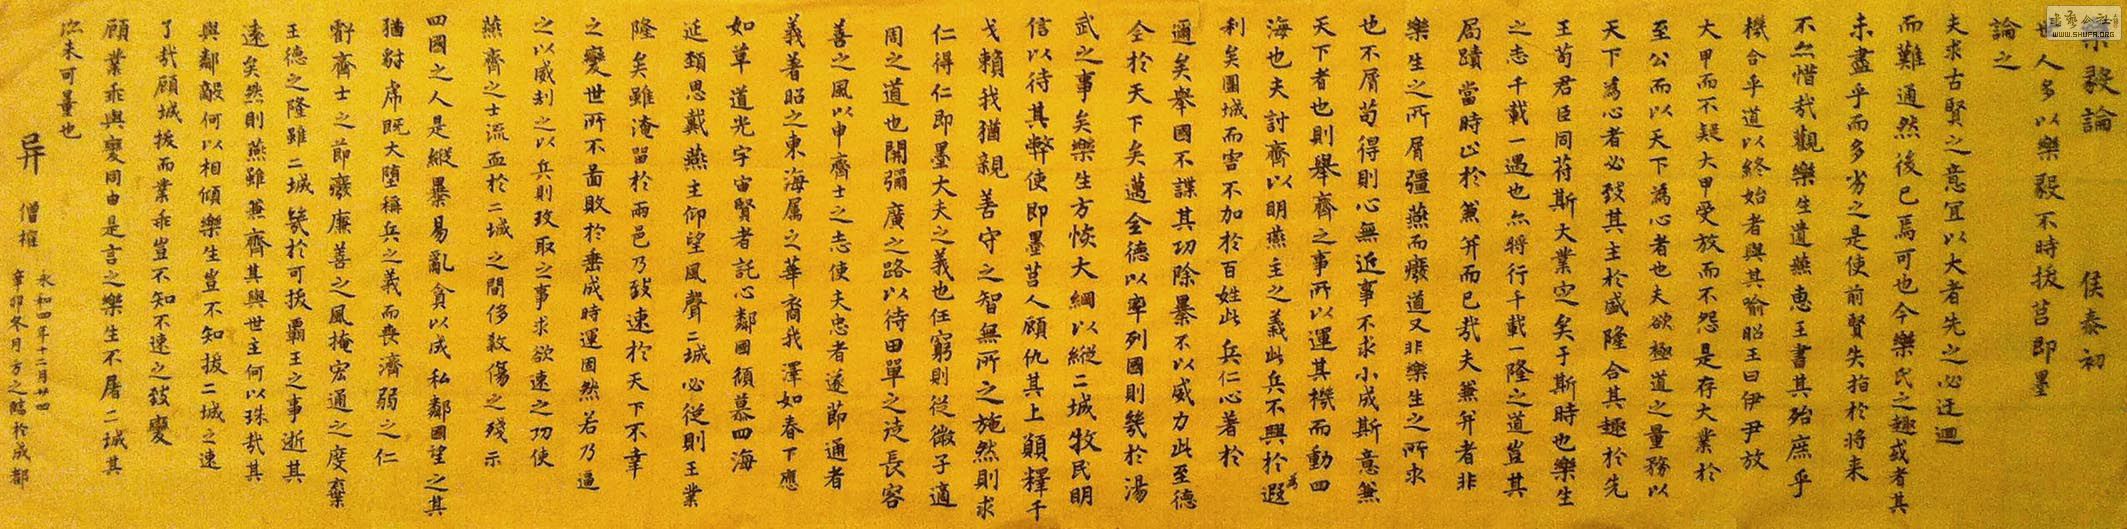 樂毅論 侯泰初
世人多以樂毅不時拔莒即墨
論之
夫求古賢之意冝以大者先之必迂迴
而難通然後已焉可也今樂氏之趣或者其
未盡乎而多劣之是使前賢失指於将来
不亦惜哉觀樂生遺燕惠王書其殆庶乎
機合乎道以終始者與其喻昭王曰伊尹放
大甲而不疑大甲受放而不怨是存大業於
至公而以天下為心者也夫欲極道之量務以
天下為心者必致其主於盛隆合其趣於先
王苟君臣同苻斯大業定矣于斯時也樂生
之志千載一遇也亦將行千載一隆之道豈其
局蹟當時止於兼并而已哉夫兼并者非
樂生之所屑彊燕而癈道又非樂生之所求
也不屑苟得則心無近事不求小成斯意兼
天下者也則舉齊之事所以運其機而動四
海也夫討齊以明燕主之義此兵不興於為遐
利矣圍城而害不加於百姓此兵仁心著於
邇矣舉國不謀其功除暴不以威力此至德
全於天下矣邁全德以率列國則幾於湯
武之事矣樂生方恢大綱以縱二城牧民明
信以待其弊使即墨莒人顧仇其上願釋干
戈賴我猶親善守之智無所之施然則求
仁得仁即墨大夫之義也任窮則從微子適
周之道也開彌廣之路以待田單之徒長容
善之風以申齊士之志使夫忠者遂節通者
義著昭之東海属之華裔我澤如春下應
如草道光宇宙賢者託心鄰國傾慕四海
延頸思戴燕主仰望風聲二城必従則王業
隆矣雖淹留於兩邑乃致速於天下不幸
之變世所不圖敗於垂成時運固然若乃逼
之以威刦之以兵則攻取之事求欲速之功使
燕齊之士流血於二城之間侈殺傷之殘示
四國之人是縱暴易亂貪以成私鄰國望之其
猶豺虎既大堕稱兵之義而喪濟弱之仁
虧齊士之節癈廉善之風掩宏通之度棄
王德之隆雖二城幾於可拔霸王之事逝其
遠矣然則燕雖兼齊其與世主何以殊哉其
與鄰敵何以相傾樂生豈不知拔二城之速
了哉顧城拔而業乖豈不知不速之致變
顧業乖與變同由是言之樂生不屠二城其
亦未可量也
异 僧權 永和四年十二月廿四
辛卯冬月方之臨於成都
書藝公社
WWW.SHUFA.ORG